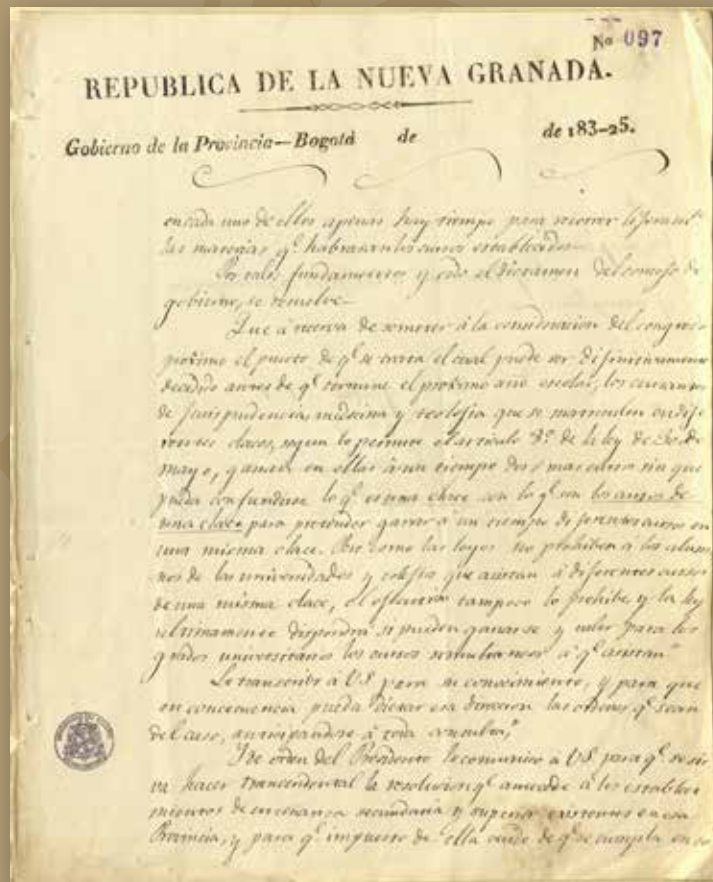 No 097
REPUBLICA DE LA NUEVA GRANADA.
Gobierno de la Provincia—Bogotá de de 183-25.
en cada uno de ellos apenas hay tiempo para recorrer
las materias q.e habrazan los cursos establecidos
Por tales fundamentos y oido el dictamen del consejo de
gobierno, se resuelve—
Que á reserva de someter á la consideracion del congreso
proximo el punto de q.e se trata el cual puede ser
decidido antes de q.e termine el proximo año escolar, los cursantes
de jurisprudencia, medicina y teolojia que se matriculen en dife
rentes clases, segun lo permite el articulo 8.o de la ley de 30 de
mayo, ganan en ellas á un tiempo dos ó mas cursos sin que
pueda confundirse lo q.e es una clase con lo q.e son los cursos de
una clase para pretender ganar á un tiempo diferentes cursos en
una misma clase. Pero como las leyes no prohiben á los alum
nos de las universidades y colejios que asistan á diferentes cursos
de una misma clase, el tampoco lo prohibe, y la ley
ultimamente dispondrá si pueden ganarse y valer para los
grados universitarios los cursos simultaneos á q.e asistan"
Lo transcribo á US para su conocimiento, y para que
en consecuencia pueda dictar esa direccion las ordenes q.e sean
del caso, anticipandose á toda consulta,"
De orden del Presidente lo comunico á US para q.e se sir
va hacer trascendental la resolucion q.e antecede á los estableci
mientos de enseñanza secundaria y superior existentes en esa
Provincia, y para q.e impuesto de ella cuide de q.e se cumpla en